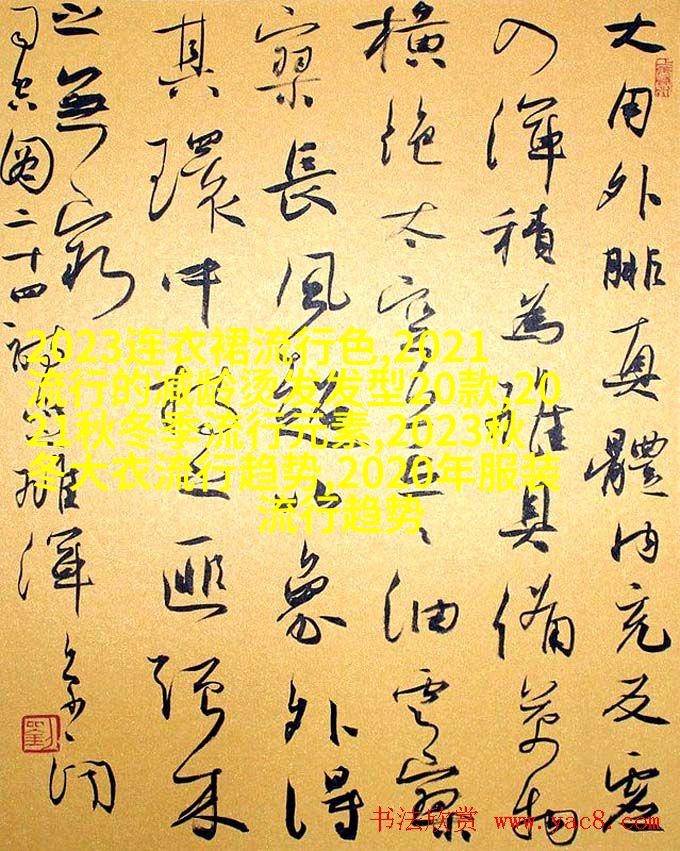 大用外腓真體内充反虛
入渾積為雄具備萬物
橫絕太空荒荒油雲寥
寥長風超以象外得
其環中持之匪強來
之無窮
司空圖二十四詩品雄渾
2023连衣裙流行色,2021
流行的减龄烫发发型20款,20
21秋冬季流行元素,2023秋
冬大衣流行趋势,2020年服装
流行趋势
书法欣赏 www.yac8.com